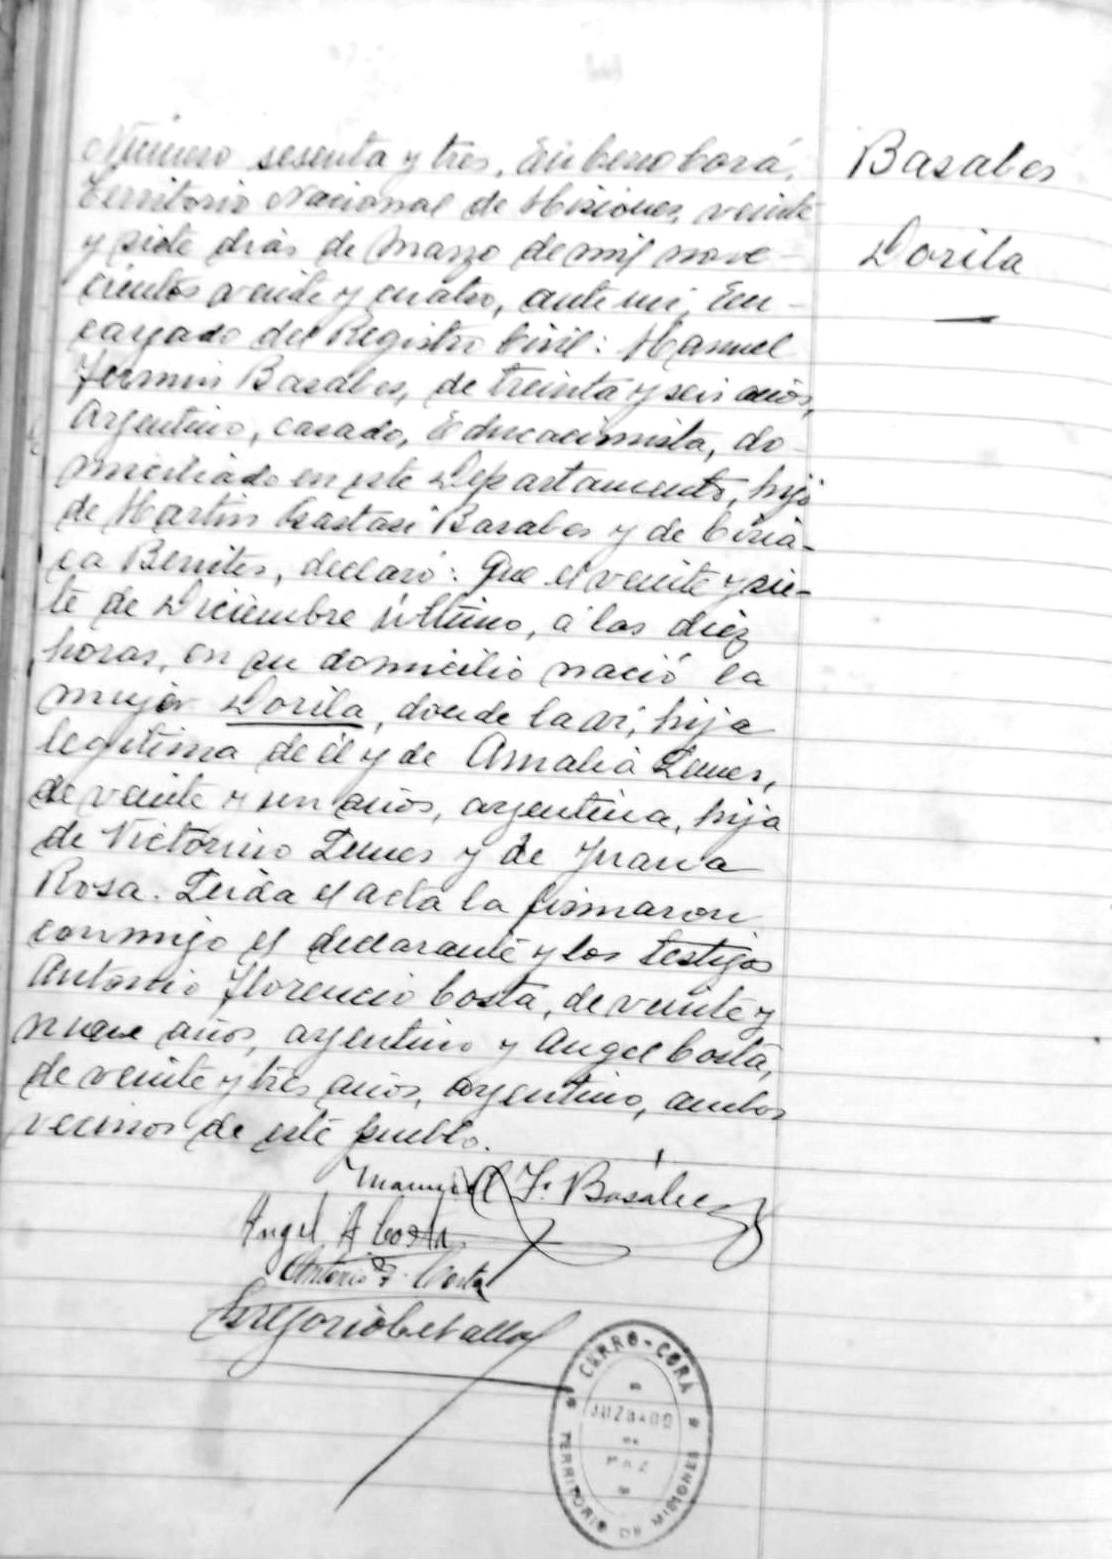 Número sesenta y tres. En Cerro Corá,
Territorio Nacional de Misiones, veinte
y siete dias de Marzo de mil nove-
cientos veinte y cuatro, ante mi, En-
cargado del Registro Civil: Manuel
Fermin Basabes, de treinta y seis años,
Argentino, casado, Educacionista, do-
miciliado en este Departamento, hijo
de Martin Basabes y de Ciria-
ca Benites, declaró: Que el veinte y sie-
te de Diciembre último, á las diez
horas, en su domicilio nació la
mujer Dorila, donde la ví, hija
legitima de él y de Amalia Lemes,
de veinte y un años, argentina, hija
de Victorino Lemes y de Juana
Rosa. Leida el acta la firmaron
conmigo el declarante y los testigos
Antonio Florencio Costa, de veinte y
nueve años, argentino y Angel Costa,
de veinte y tres años, argentino, ambos
vecinos de este pueblo.
Manuel F. Basabes
Angel A Costa
Antonio F. Costa
Gregorio
Basabes
Dorila
CERRO-CORÁ
JUZGADO
DE
PAZ
TERRITORIO DE MISIONES